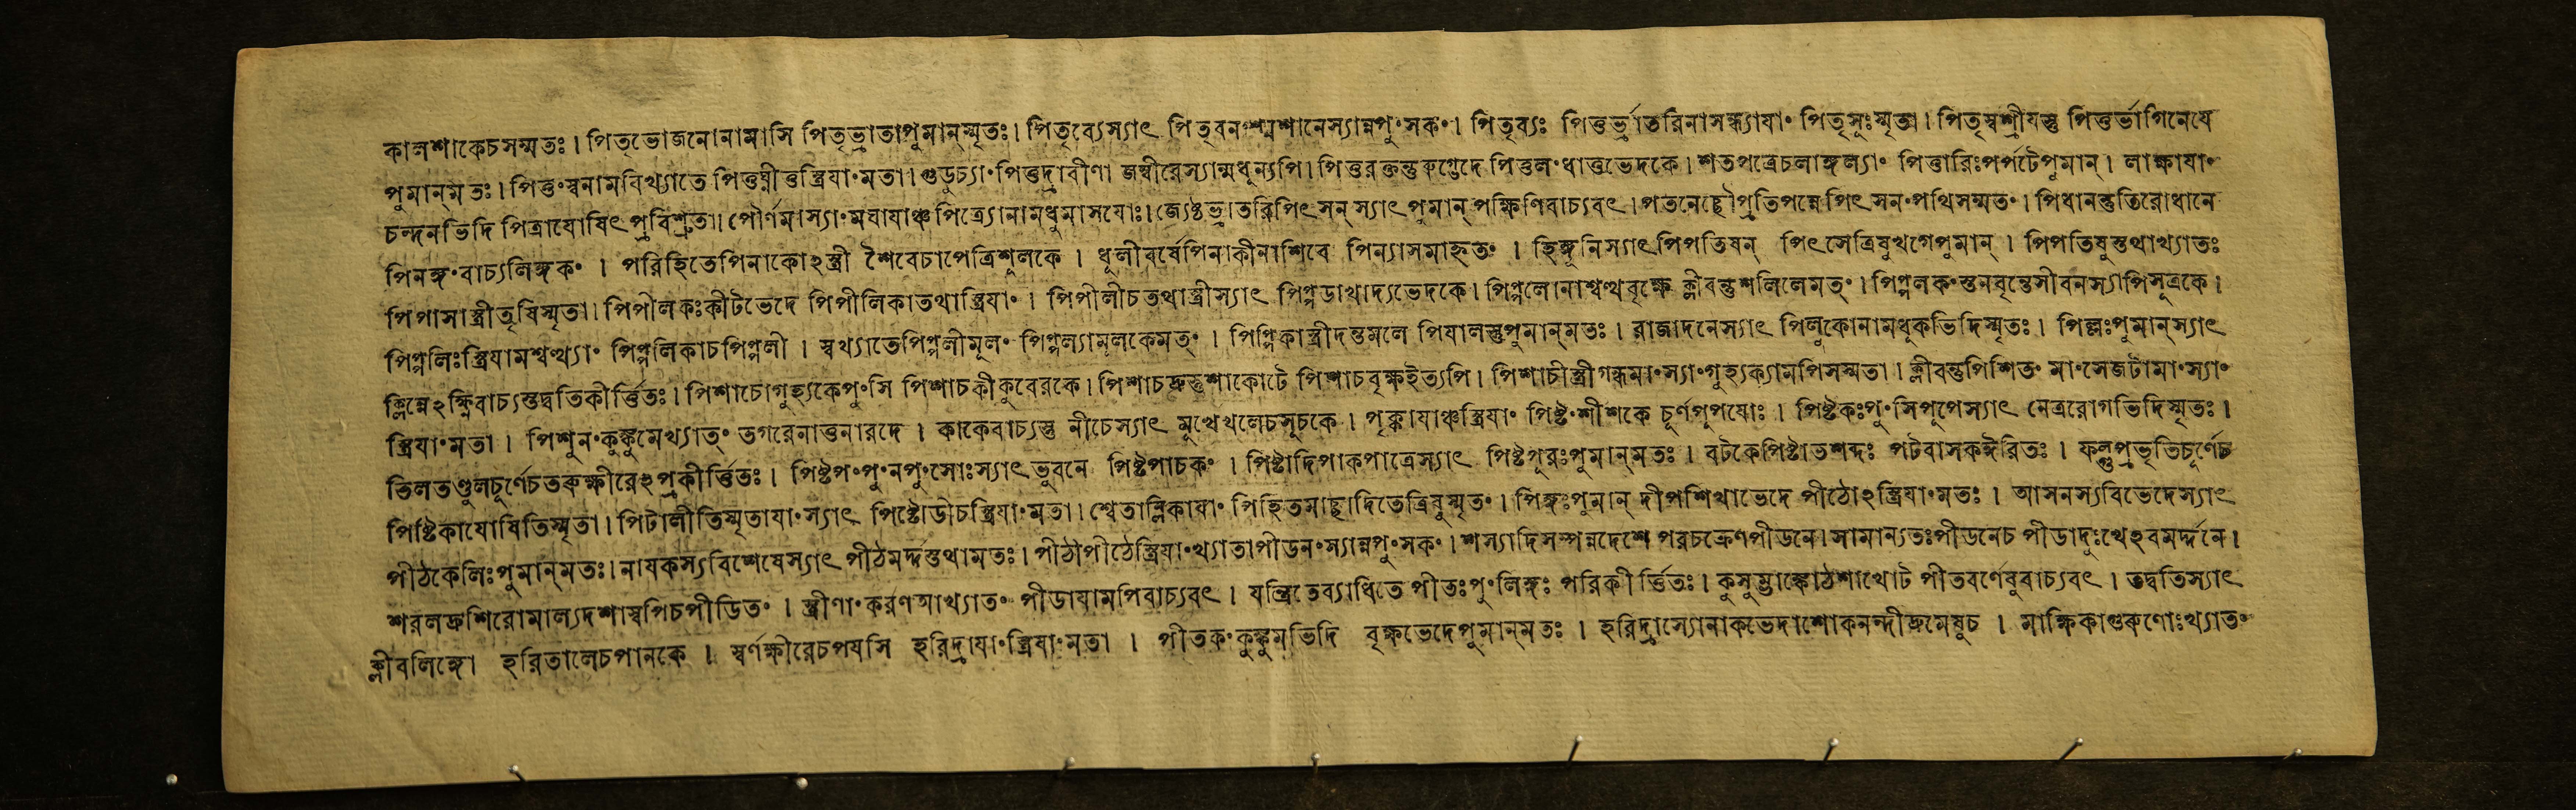 কালশাকেচসম্মতঃ। পিতৃভোজনোনামাসি পিতৃভ্রাতাপুমান্‌স্মৃতঃ। পিতৃব্যেস্যাৎ পিতৃবনংশ্মশানেস্যান্নপুংসকং। পিতৃব্যঃ পিত্তর্ভ্রাতরিনাসন্ধ্যাযাং পিতৃসূঃস্মৃতা। পিতৃস্বশ্রীযস্তু পিত্তর্ভাগিনেযে
পুমান্‌মতঃ। পিত্তংস্বনামবিখ্যাতে পিত্তঘ্নীত্তস্ত্রিযাংমতা। গুডুচ্যাংপিত্তদ্রাবীণা জম্বীরেস্যান্মধুন্যপি। পিত্তরক্তন্তুরুগ্ভেদে পিত্তলংধাত্তভেদকে। শতপত্রেচলাঙ্গল্যাং পিত্তারিঃপর্পটেপুমান্‌। লাক্ষাযাং
চন্দনভিদি পিত্রাযোষিৎপ্রবিশ্রুতা। পৌর্ণমাস্যাংমঘাযাঞ্চপিত্র্যোনামধুমাসযোঃ। জ্যেষ্ঠভ্রাতরিপিৎসন্‌ স্যাৎপুমান্‌ পক্ষিণিবাচ্যবৎ। পতনেচ্ছৌপ্রতিপন্নেপিৎসনংপথিসম্মতং। পিধানন্তুতিরোধানে
পিনঙ্গংবাচ্যলিঙ্গকং । পরিহিতেপিনাকোঽস্ত্রী শৈবেচাপেত্রিশূলকে । ধূলীবর্ষেপিনাকীনাশিবে পিন্যাসমাহৃতং । হিঙ্গুনিস্যাৎপিপতিষন্‌ পিৎসেত্রিষুখগেপুমান্‌ । পিপতিষুস্তথাখ্যাতঃ
পিপাসাস্ত্রীতৃষিস্মৃতা। পিপীলকঃকীটভেদে পিপীলিকাতথাস্ত্রিযাং । পিপীলীচতথাস্ত্রীস্যাৎ পিপ্পডাখাদ্যভেদকে। পিপ্পলোনাশ্বত্থবৃক্ষে ক্লীবন্তুশলিলেমতং। পিপ্পলকংস্তনবৃন্তেসীবনস্যাপিসূত্রকে।
পিপ্পলিঃস্ত্রিযামশ্বত্থ্যাং পিপ্পলিকাচপিপ্পলী । স্বখ্যাতেপিপ্পলীমূলং পিপ্পল্যামূলকেমতং । পিপ্পিকাস্ত্রীদন্তমলে পিযালস্তুপুমান্‌মতঃ। রাজাদনেস্যাৎ পিলুকোনামধূকভিদিস্মৃতঃ। পিল্লঃপুমান্‌স্যাৎ
ক্লিন্নেঽক্ষ্ণিবাচ্যস্তদ্বতিকীর্ত্তিতঃ। পিশাচোগুহ্যকেপুংসি পিশাচকীকুবেরকে। পিশাচদ্রুস্তুশাকোটে পিশাচবৃক্ষইত্যপি। পিশাচীস্ত্রীগন্ধমাংস্যাংগুহ্যক্যামপিসম্মতা। ক্লীবন্তুপিশিতং মাংসেজটামাংস্যাং
স্ত্রিযাংমতা । পিশুনংকুঙ্কুমেখ্যাতং তগরেনাত্তনারদে । কাকেবাচ্যস্তু নীচেস্যাৎ মূর্খেখলেচসূচকে । পৃক্কাযাঞ্চস্ত্রিযাং পিষ্টংশীশকে চূর্ণপূপযোঃ । পিষ্টকঃপুংসিপূপেস্যাৎ নেত্ররোগভিদিস্মৃতঃ।
তিলতণ্ডুলচূর্ণেচতরুক্ষীরেঽপ্রকীর্ত্তিতঃ। পিষ্টপংপুংনপুংসোঃস্যাৎভুবনে পিষ্টপাচকং । পিষ্টাদিপাকপাত্রেস্যাৎ পিষ্টপূরঃপুমান্‌মতঃ। বটকেপিষ্টাতশব্দঃ পটবাসকঈরিতঃ। ফল্গুপ্রভৃতিচূর্ণেচ
পিষ্টিকাযোষিতিস্মৃতা। পিটালীতিস্মৃতাযাংস্যাৎ পিষ্টোডীচস্ত্রিযাংমতা। শ্বেতাম্লিকাযাং পিহিতমাচ্ছাদিতেত্রিষুস্মৃতং। পিঙ্গঃপুমান্‌ দীপশিখাভেদে পীঠোঽস্ত্রিযাংমতঃ। আসনস্যবিভেদেস্যাৎ
পীঠকেলিঃপুমান্‌মতঃ। নাযকস্যবিশেষেস্যাৎ পীঠমর্দ্দস্তথামতঃ। পীঠীপীঠেস্ত্রিযাংখ্যাতাপীডনংস্যান্নপুংসকং। শস্যাদিসম্পন্নদেশে পরচক্রেণপীডনে। সামান্যতঃপীডনেচ পীডাদুঃখেঽবমর্দ্দনে।
শরলদ্রুশিরোমাল্যদশাস্বপিচপীডিতং । স্ত্রীণাংকরণআখ্যাতং পীডাযামপিবাচ্যবৎ । যন্ত্রিতেব্যাধিতে পীতঃপুংলিঙ্গঃ পরিকীর্ত্তিতঃ। কুসুম্ভাঙ্কোঠশাখোট পীতবর্ণেষুবাচ্যবৎ । তদ্বতিস্যাৎ
ক্লীবলিঙ্গো হরিতালেচপানকে । স্বর্ণক্ষীরেচপযসি হরিদ্রাযাংস্ত্রিযাংমতা । পীতকংকুঙ্কুমভিদি বৃক্ষভেদেপুমান্‌মতঃ । হরিদ্রাস্যোনাকভেদাশোকনন্দীদ্রুমেষুচ । মাক্ষিকাগুরুণোঃখ্যাতং